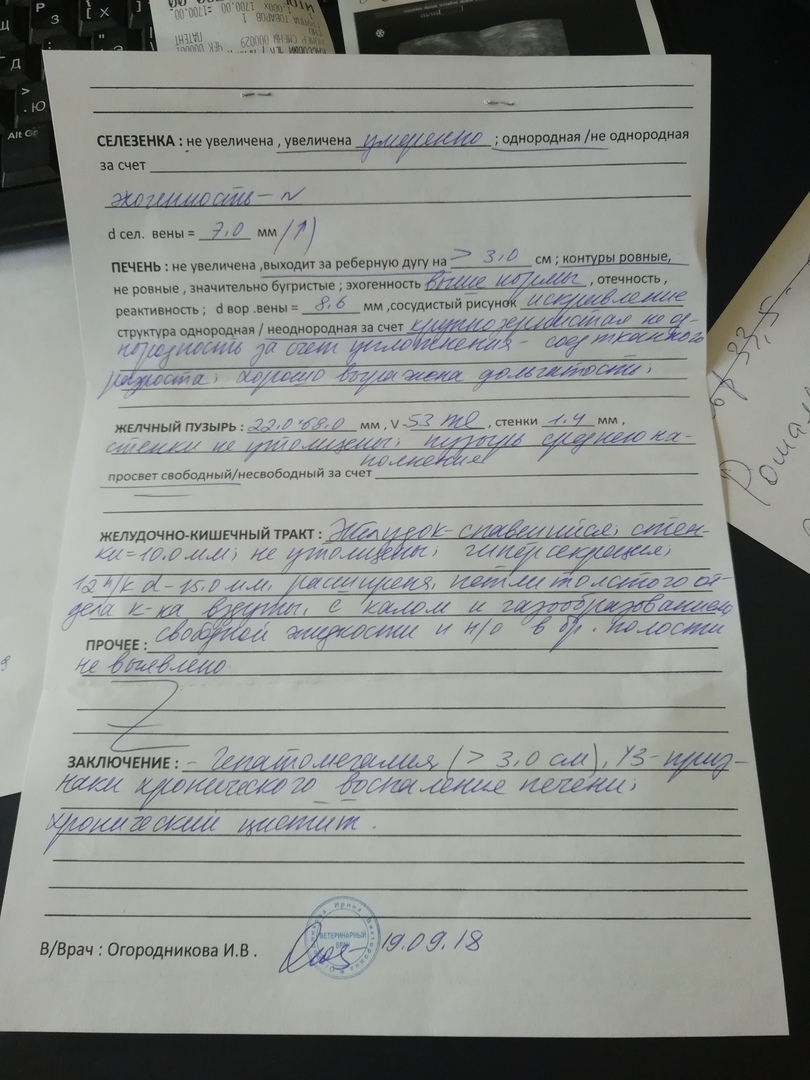 СЕЛЕЗЕНКА : не увеличена , увеличена умеренно ; однородная /не однородная
за счет
эхогенность - N
d сел. вены = 7,0 мм (↑)
ПЕЧЕНЬ : не увеличена ,выходит за реберную дугу на > 3,0 см ; контуры ровные,
не ровные , значительно бугристые ; эхогенность выше нормы , отечность ,
реактивность ; d вор .вены = 8,6 мм ,сосудистый рисунок искривление
структура однородная / неоднородная за счет крупнозернистая неод-
нородность за счет уплотнения - соед тканного
разроста; хорошо выражена дольчатость;
ЖЕЛЧНЫЙ ПУЗЫРЬ : 22,0*68,0 мм , V - 53 ml , стенки 1,4 мм ,
стенки не утолщены; пузырь среднего на-
полнения
просвет свободный/несвободный за счет
ЖЕЛУДОЧНО-КИШЕЧНЫЙ ТРАКТ : Желудок - спавшийся, стен-
ки = 10.0 мм; не утолщены; гиперсекреция;
12 п/к d - 15.0 мм, расширена, петли толстого от-
дела к-ка вздуты, с калом и газообразованием
ПРОЧЕЕ : свободной жидкости и н/о в бр. полости
не выявлено
ЗАКЛЮЧЕНИЕ : - Гепатомегалия (> 3,0 см), УЗ-приз-
наки хронического воспаление печени;
хронический цистит.
В/Врач : Огородникова И.В . 19.09.18
ВЕТЕРИНАРНЫЙ
ВРАЧ
Alt Gr